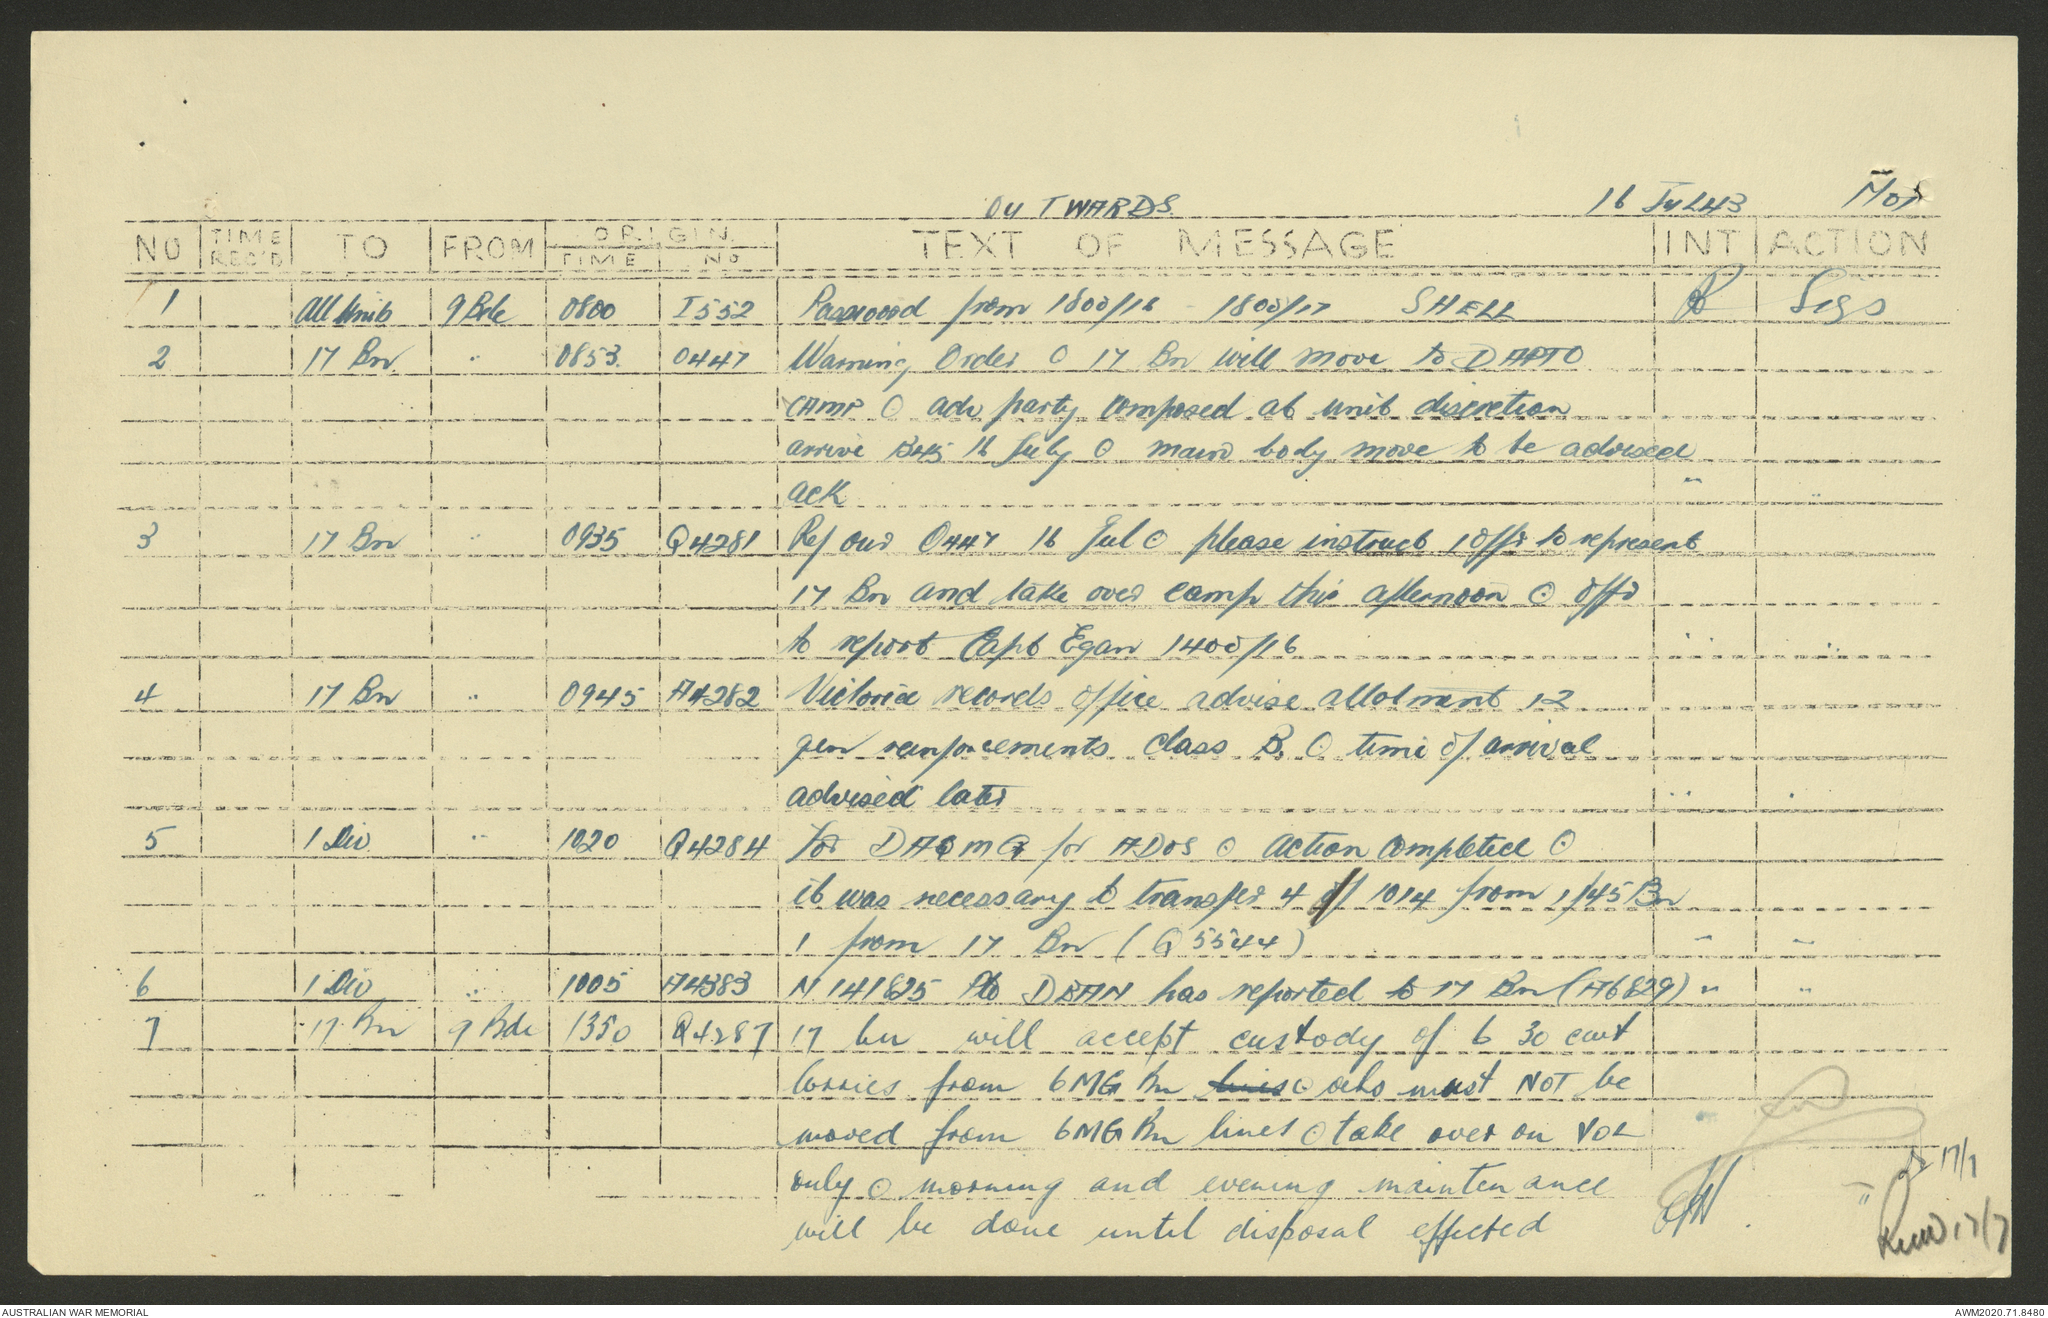 OUTWARDS 16 JUL 43
NO TIME REC'D TO FROM ORIGIN TIME NO TEXT OF MESSAGE INT ACTION
1 All Units 9 Bde 0800 I552 Password from 1800/16 - 1800/17 SHELL Sigs
2 17 Bn " 0853 O447 Warning Order ⊙ 17 Bn will move to DAPTO
CAMP ⊙ adv party composed at unit discretion
arrive 16 July ⊙ main body move to be advised
ack " "
3 17 Bn " 0935 Q4281 Ref our O447 16 Jul ⊙ please instruct 1 offr to represent
17 Bn and take over camp this afternoon ⊙ offr
to report Capt Egan 1400/16 " "
4 17 Bn " 0945 A4282 Victoria records office advise allotment 12
gen reinforcements class B. ⊙ time of arrival
advised later " "
5 1 Div " 1020 Q4284 For DAQMG for ADOS ⊙ action completed ⊙
it was necessary to transfer 4 of 1014 from 1/45 Bn
1 from 17 Bn (Q5544) " "
6 1 Div " 1005 A4383 N141825 Pte DEAN has reported to 17 Bn (A6829) " "
7 17 Bn 9 Bde 1350 Q4287 17 bn will accept custody of 6 30 cwt
lorries from 6MG Bn ⊙ vehs must NOT be
moved from 6MG Bn lines ⊙ take over on
only ⊙ morning and evening maintenance 17/7
will be done until disposal effected 17/7
AUSTRALIAN WAR MEMORIAL AWM2020.71.8480